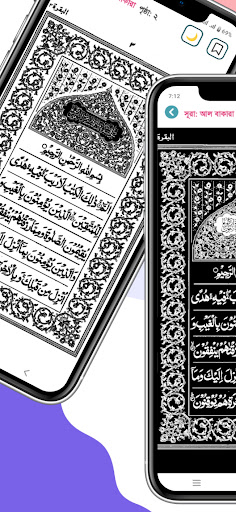 69%
পৃষ্ঠা: ২
البقرة
٢
بِسْمِ اللهِ الرَّحْمٰنِ الرَّحِيْمِ
الٓمّٓ ذٰلِكَ الْكِتٰبُ لَا رَيْبَ فِيْهِ هُدًى
لِّلْمُتَّقِيْنَ الَّذِيْنَ يُؤْمِنُوْنَ بِالْغَيْبِ
وَيُقِيْمُوْنَ الصَّلٰوةَ وَمِمَّا رَزَقْنٰهُمْ
وَالَّذِيْنَ يُؤْمِنُوْنَ بِمَآ اُنْزِلَ
اُنْزِلَ مِنْ قَبْلِكَ
7:12
সূরা: আল বাকারা
البقرة
الرَّحِيْمِ
فِيْهِ هُدًى
بِالْغَيْبِ
رَزَقْنٰهُمْ يُنْفِقُوْنَ
اُنْزِلَ اِلَيْكَ وَمَآ
هُمْ يُوْقِنُوْنَ